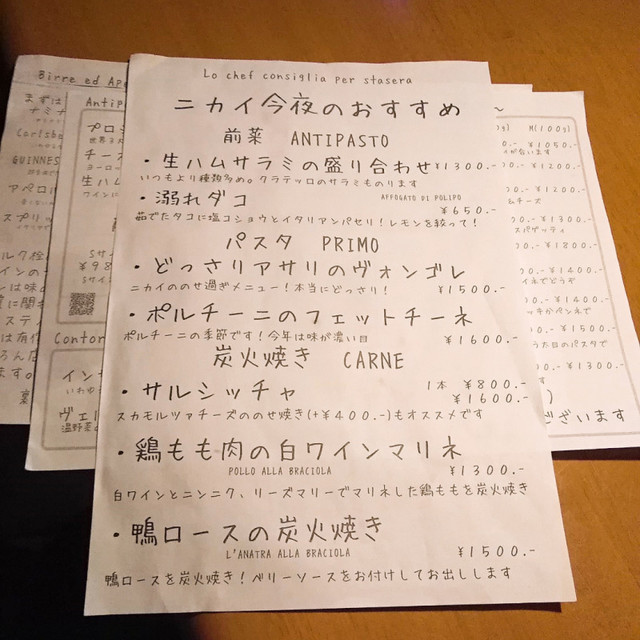 Lo chef consiglia per stasera
ニカイ今夜のおすすめ
前菜 ANTIPASTO
・生ハムサラミの盛り合わせ ¥1300.-
いつもより種類多め。クラテッロのサラミものります
・溺れダコ APPOGATO DI POLIPO
¥650.-
茹でたタコに塩コショウとイタリアンパセリ！レモンを絞って！
パスタ PRIMO
・どっさりアサリのヴォンゴレ
ニカイののせ過ぎメニュー！本当にどっさり！ ¥1500.-
・ポルチーニのフェットチーネ
ポルチーニの季節です！今年は味が濃い目 ¥1600.-
炭火焼き CARNE
・サルシッチャ 1本 ¥800.-
¥1600.-
スカモルツァチーズののせ焼き(+¥400.-)もオススメです
・鶏もも肉の白ワインマリネ
POLLO ALLA BRACIOLA ¥1300.-
白ワインとニンニク、リーズマリーでマリネした鶏ももを炭火焼き
・鴨ロースの炭火焼き
L'ANATRA ALLA BRACIOLA ¥1500.-
鴨ロースを炭火焼き！ベリーソースをお付けしてお出しします
Birre ed
まずは
GUINNES
アペロ
スプリッ
Antip
プロシ
チーズ
生ハム
ワインに
Contor
イン
いわゆ
ヴェ
温野菜
M(100g)
¥1050.-
¥1200.-
¥1200.-
ムチーズ
¥1300.-
スパゲッティ
¥1800.-
¥1400.-
イルでどうぞ
¥1400.-
ッチかペンネで
¥1500.-
うた日のパスタで
¥1300.-
ございます